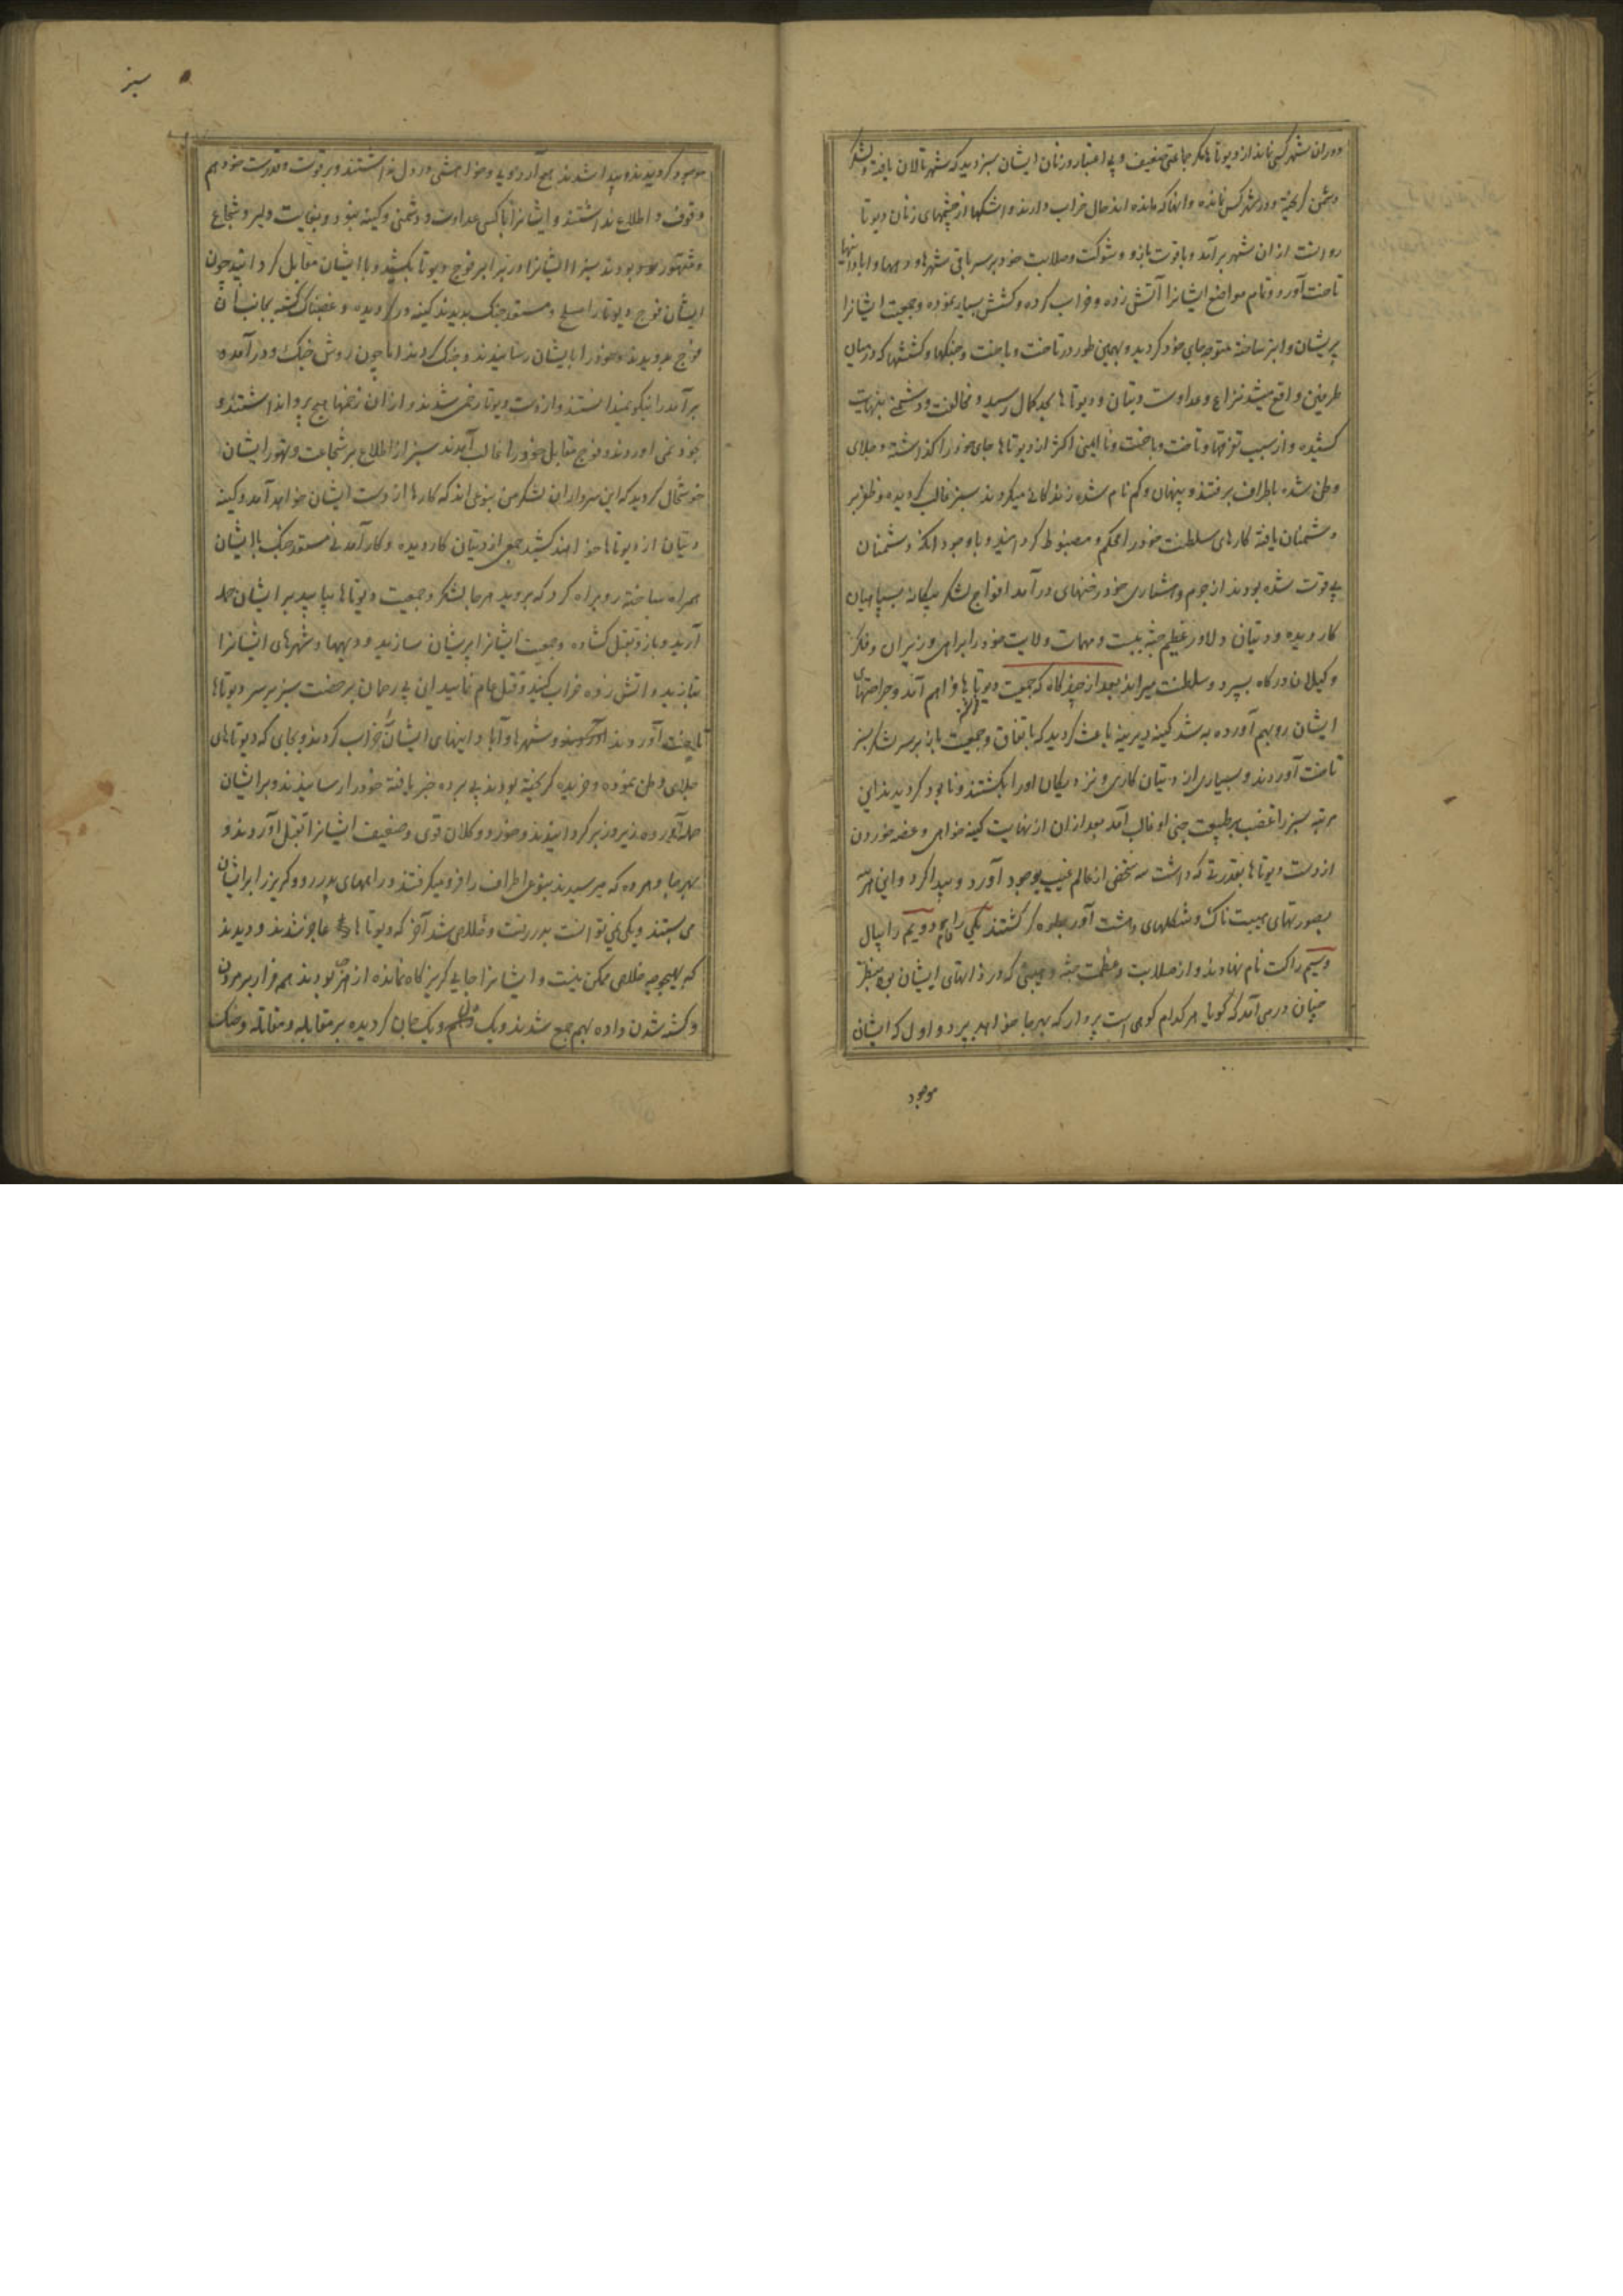 دوران شهر کسی نماند از دیوتا ها مگر جماعتی ضعیف و بی اعتبار و زنان ایشان سبز دید که شهر تالان یافته و لشکر
دشمن گریخته و در شهر کس نمانده و آنها که مانده اند حال خراب دارند و اشکها از چشمهای زنان دیوتا
روانست از ان شهر برآمد و با قوت بازو و شوکت و صلابت خود بر سر باقی شهرها و دیهها و آبادانیها
تاخت آورد و تمام مواضع ایشانرا آتش زده و خراب کرده و کشش بسیار نموده و جمعیت ایشانرا
پریشان و ابتر ساخته متوجه جای خود گردید و بهمین طور در تاخت و باخت و جنگها و کششها که در میان
طرفین واقع میشد نزاع و عداوت دیتان و دیوتا ها بحد کمال رسید و مخالفت و دشمنی بنهایت
کشیده و از سبب تفرقها و تاخت و باخت و نا ایمنی اکثر از دیوتاها جای خود را گذاشته و جلای
وطن شده باطراف برفتند و پنهان و کم نام شده زندگانی میکردند سبز غالب گردیده و ظفر بر
دشمنان یافته کارهای سلطنت خود را محکم و مضبوط گردانید و با وجود آنکه دشمنان
بی قوت شده بودند از حزم و هشیاری خود رخنهای درآمد افواج لشکر بیگانه بسپاهیان
کار دیده و دیتان دلاور عظیم جثه ببست و مهمات ولایت خود را برای وزیران و فکر
وکیلان درگاه بسپرد و سلطنت میراند بعد از چندگاه که جمعیت دیوتا ها فراهم آمد و جراحتهای
ایشان رو بهم آورده به شد کینه دیرینه باعث گردید که باتفاق و جمعیت باز بر سر لشکر سبز
تاخت آوردند و بسیاری از دیتان کاری و نزدیکان او را بکشتند و نابود گردیدند این
مرتبه سبز را غضب بر طبیعت چنی او غالب آمد بعد ازان از نهایت کینه خواهی و غصه خوردن
از دست دیوتا ها بقدرتی که داشت سه شخص از عالم غیب بوجود آورد و پیدا کرد و این هر سه
بصورتهای هیبت ناک و شکلهای دهشت آور جلوه گر گشتند یکی را دام و دویم را بیال
و سیم را کت نام نهادند و از صلابت و عظمت جثه و هیبتی که در ذاتهای ایشان بود بنظر
چنان در می آمد که گویا هر کدام کوهی است پردار که بهر جا خواهد بپرد و اول که ایشان
موجود
۵ سبز
موجود گردیدند و پیدا شدند هیچ آرزوی و خواهشی در دل نداشتند و بر قوت و قدرت خود هم
وقوف و اطلاع نداشتند و ایشانرا با کسی عداوت و دشمنی و کینه نبود و بغایت دلیر و شجاع
و متهور بودند سبز ایشانرا در برابر فوج دیوتا بکشید و با ایشان مقابل گردانید چون
ایشان فوج دیوتا را مسلح و مستعد جنگ بدیدند کینه ور گردیده و غضبناک گشته بجانب آن
فوج بدویدند و خود را بایشان رسانیدند و جنگ کردند اما چون روش جنگ و درآمده
برآمد را نیکو نمیدانستند و از دست دیوتا زخمی شدند و از ان زخمها هیچ پروا نداشتند و
بخود نمی آوردند و فوج مقابل خود را غالب آمدند سبز از اطلاع بر شجاعت و تهور ایشان
خوشحال گردید که این سرداران لشکر من بنوعی اند که کارها از دست ایشان خواهد آمد و کینه
دیتان از دیوتاها خواهند کشید جمعی از دیتان کار دیده و کارآمدنی مستعد جنگ با ایشان
همراه ساخته روبراه کرد که بروید هر جا لشکر و جمعیت دیوتاها بیابید بر ایشان حمله
آرید و بازو بقتل گشاده و جمعیت ایشانرا پریشان سازید و دیهها و شهرهای ایشانرا
بتازید و آتش زده خراب کنید و قتل عام نمایید این بی رحمان برخصت سبز بر سر دیوتاها
تاخت آوردند و شهرها و آبادانیهای ایشان را خراب کردند و بجای که دیوتاهای
جلای وطن نموده و خزیده گریخته بودند پی برده خبر یافته خود را رسانیدند و بر ایشان
حمله آورده زیر و زبر گردانیدند و خورد و کلان قوی و ضعیف ایشانرا بقتل آوردند و
بهر جا و هر ده که میرسیدند بنوعی اطراف را فرو میگرفتند و راههای بدر رو و گریز را بر ایشان
می بستند و یکی نمی توانست بدر رفت و خلاص شد آخر که دیوتا ها عاجز شدند و دیدند
که بهیچوجه خلاصی ممکن نیست و ایشانرا جایی گریزگاه نمانده از هر جا بودند همه قرار بر مردن
و کشته شدن داده بهم جمع شدند و یک دل و یک جان گردیده بر مقابله و مقاتله و جنگ